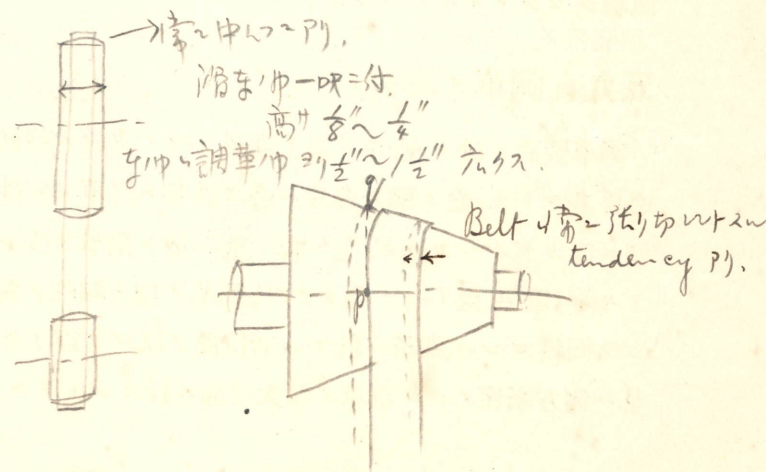 常ニ中凸ニアリ.
滑車ノ巾一吋ニ付.
高サ 1/8"〜1/4"
車ノ巾ハ調革ノ巾ヨリ 1/2"〜1 1/2" 広クス.
q
p
Belt ハ常ニ張リ切レントスル
tendency アリ.